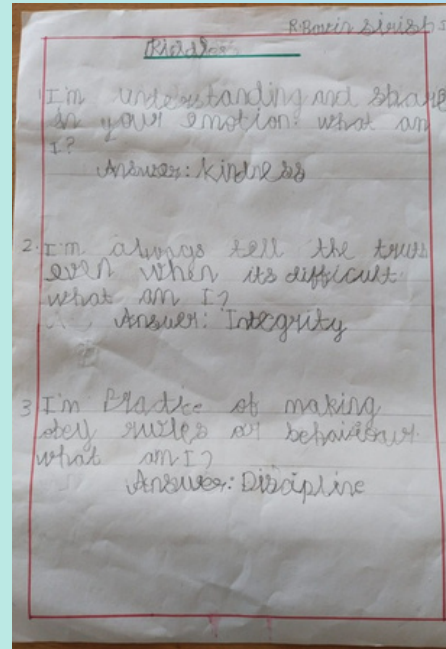 R. Bovin Sirish I
Riddles
1 I'm understanding and share
in your emotion. what am
I?
Answer: Kindness
2. I'm always tell the truth
even when its difficult.
what am I?
Answer: Integrity
3 I'm Practice of making
obey rules or behaviour
what am I?
Answer: Discipline